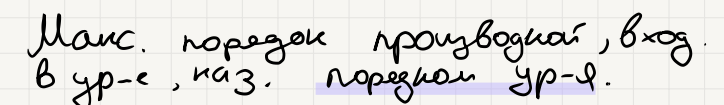 Макс. порядок производной, вход.
в ур-е, наз. порядком ур-я.